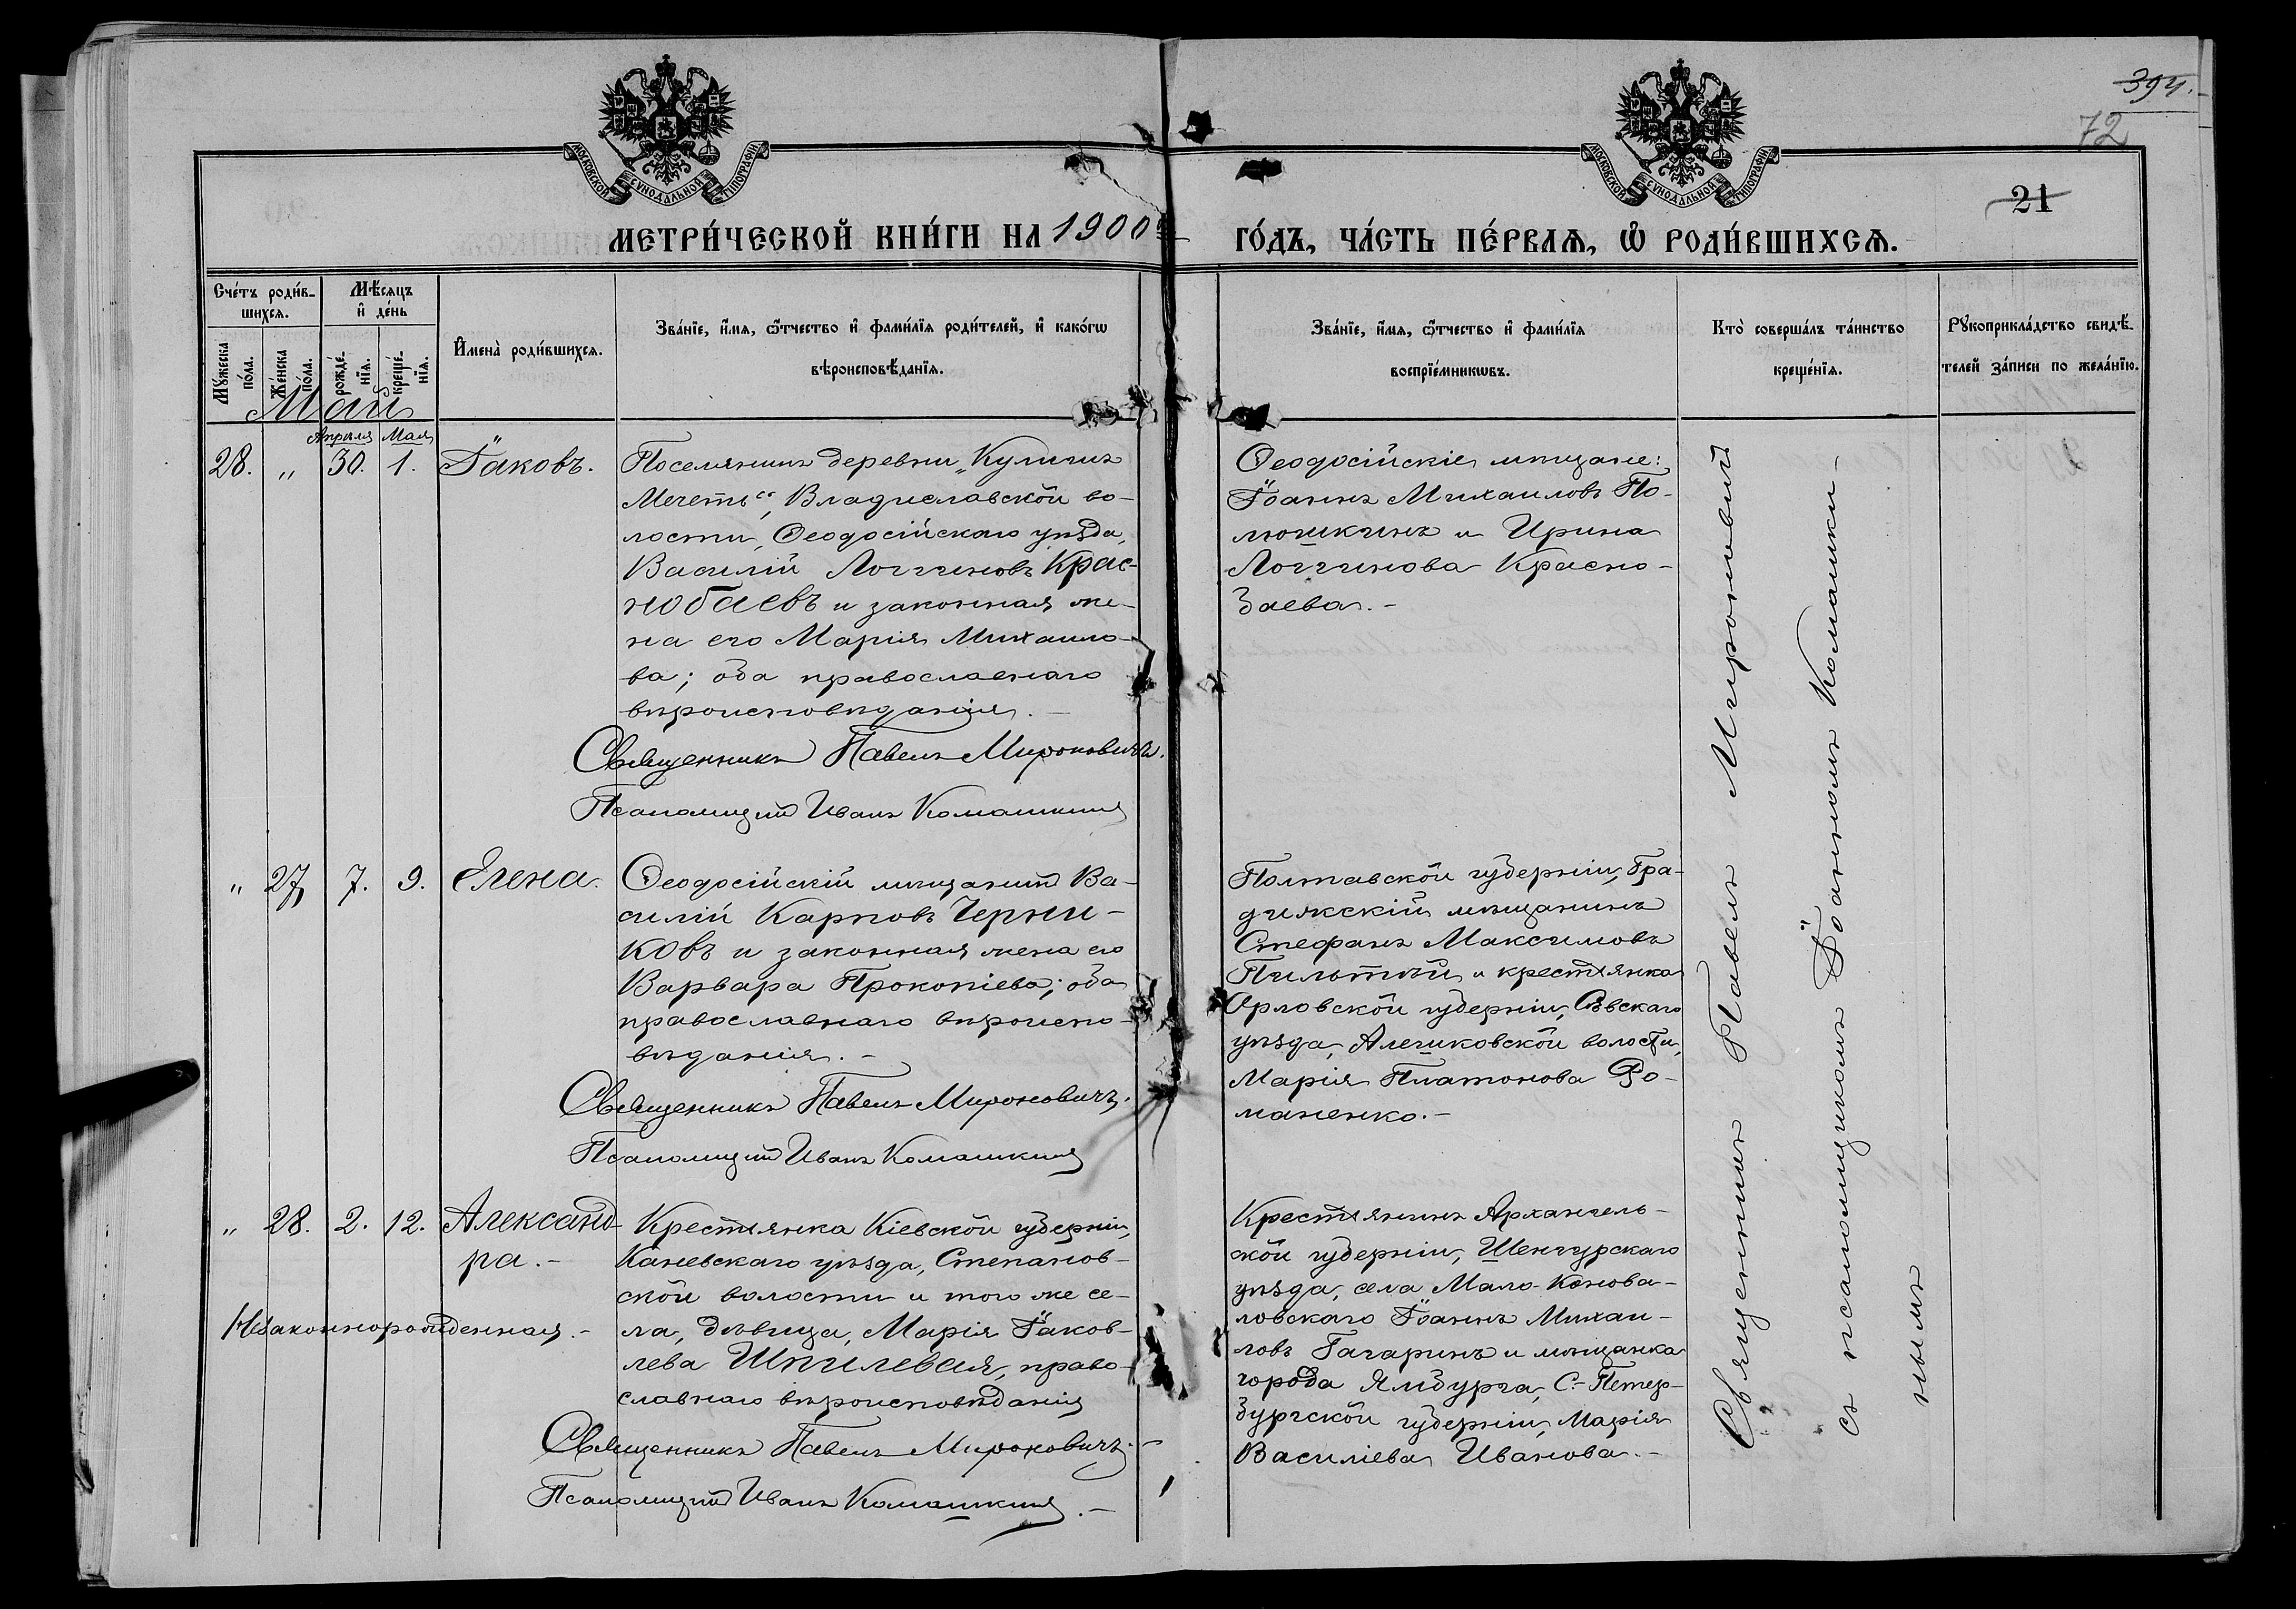 394.
72
21
МОСКОВСКОЙ СѴНОДАЛЬНОЙ ТИПОГРАФІИ
МОСКОВСКОЙ СѴНОДАЛЬНОЙ ТИПОГРАФІИ
МЕТРИ́ЧЕСКОЙ КНИ́ГИ НА 1900
ГО́ДЪ, ЧА́СТЬ ПЕ́РВАѦ, Ѽ РОДИ́ВШИХСѦ.
Сче́тъ роди́в-
шихсѧ.
Мѣ́сѧцъ
и҆ де́нь
Мꙋ́жеска
по́ла.
Же́нска
по́ла.
рожде́-
нїѧ.
креще́-
нїѧ.
И҆мена̀ роди́вшихсѧ.
Зва́нїе, и҆́мѧ, ѻ҆́тчество и҆ фами́лїѧ роди́телей, и҆ како́гѡ
вѣроисповѣ́данїѧ.
Зва́нїе, и҆́мѧ, ѻ҆́тчество и҆ фами́лїѧ
воспрїе́мникѡвъ.
Кто̀ соверша́лъ та́инство
креще́нїѧ.
Рꙋкоприкла́дство свидѣ́-
телей за́писи по жела́нїю.
Май
Апрѣля Мая
28. " 30. 1. Іаковъ.
Поселянинъ деревни „Куличи
Мечеть", Владиславской во-
лости, Ѳеодосійскаго уѣзда,
Василій Логгиновъ Крас-
нобаевъ и законная же-
на его Марія Михаило-
ва; оба православнаго
вѣроисповѣданія. -
Священникъ Павелъ Мироновичъ.
Псаломщикъ Иванъ Комашкинъ
Ѳеодосійскіе мѣщане:
Іоаннъ Михаиловъ По-
люшкинъ и Ирина
Логгинова Красно-
баева. -
" 27. 7. 9. Елена.
Ѳеодосійскій мѣщанинъ Ва-
силій Карповъ Черни-
ковъ и законная жена его
Варвара Прокопіева; оба
православнаго вѣроиспо-
вѣданія. -
Священникъ Павелъ Мироновичъ.
Псаломщикъ Иванъ Комашкинъ
Полтавской губерніи, Гра-
дижскій мѣщанинъ
Стефанъ Максимовъ
и крестьянка
Орловской губерніи, Сѣвскаго
уѣзда, Алешковской волости,
Марія Платонова Ро-
маненко. -
" 28. 2. 12. Александ-
ра. -
Незаконнорожденная. -
Крестьянка Кіевской губерніи,
Каневскаго уѣзда, Степанов-
ской волости и того же се-
ла, дѣвица, Марія Іаков-
лева Шпилевая, право-
славнаго вѣроисповѣданія
Священникъ Павелъ Мироновичъ. -
Псаломщикъ Иванъ Комашкинъ. -
Крестьянинъ Архангель-
ской губерніи, Шенкурскаго
уѣзда, села Мало-Конова-
ловскаго Іоаннъ Михаи-
ловъ Гагаринъ и мѣщанка
города Ямбурга, С.-Петер-
бургской губерніи, Марія
Василіева Иванова. -
Священникъ Павелъ Мироновичъ
съ псаломщикомъ Іоанномъ Комашки-
нымъ